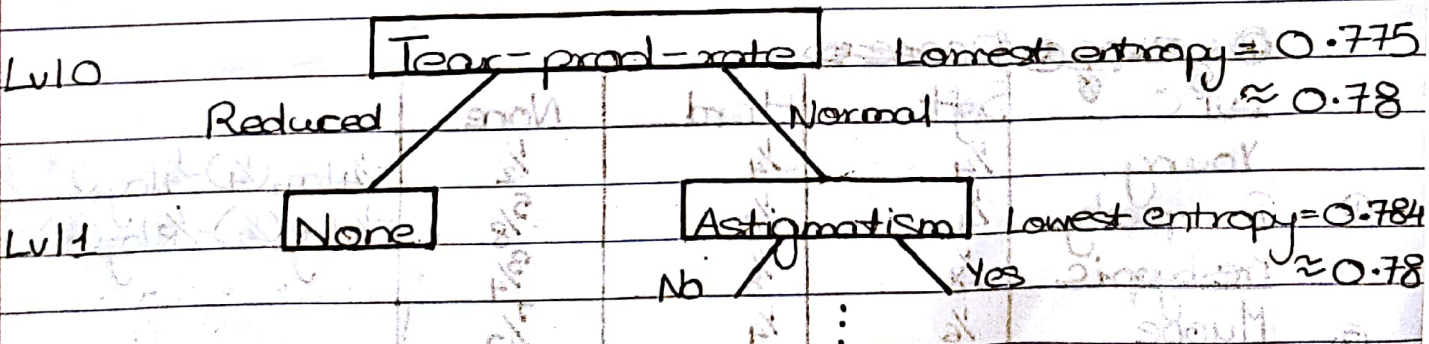 Lvl0 Tear-prod-rate Lowest entropy = 0.775
≈ 0.78
Reduced Normal
Lvl1 None Astigmatism Lowest entropy=0.784
≈0.78
No Yes
⋮